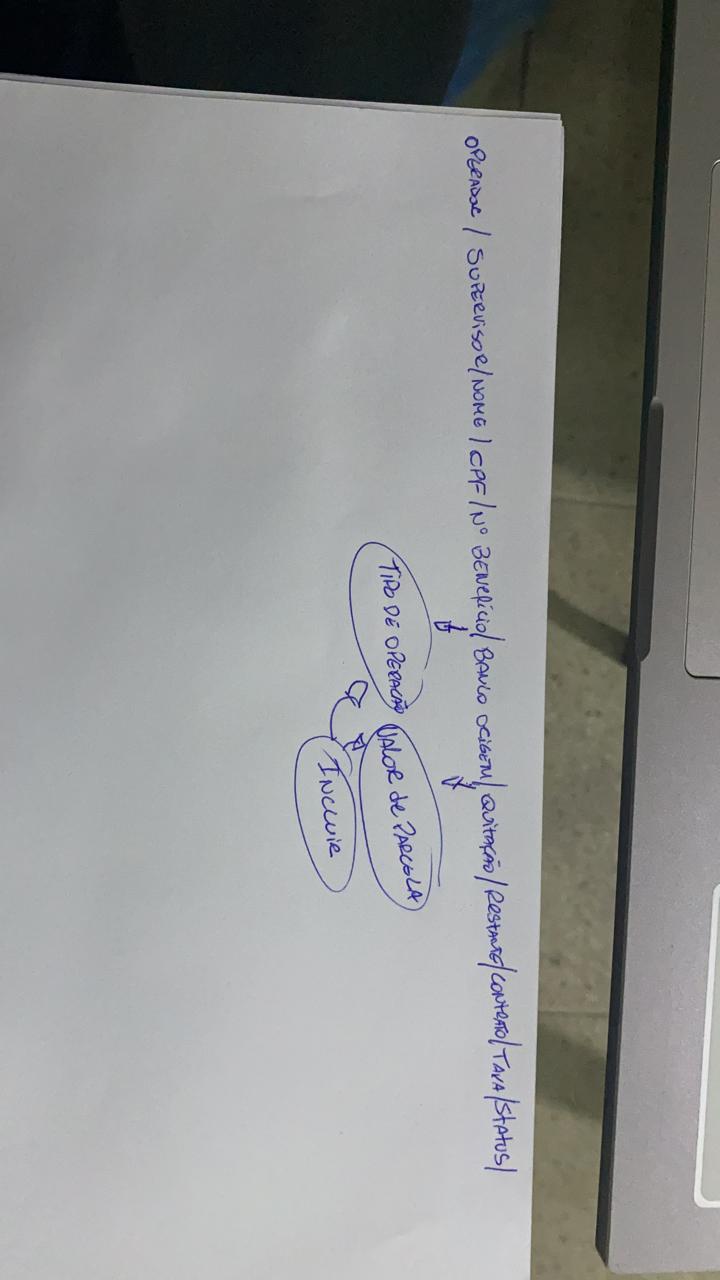 OPERADOR / SUPERVISOR / NOME / CPF / Nº BENEFÍCIO / BANCO ORIGEM / QUITAÇÃO / RESTANTE / CONTRATO / TAXA / STATUS /
TIPO DE OPERAÇÃO VALOR de PARCELA
INCLUIR